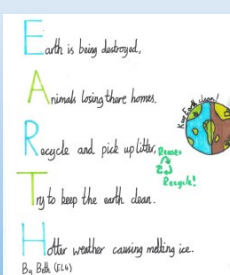 Earth is being destroyed,
Animals losing there homes.
Recycle and pick up litter,
Try to keep the earth clean.
Hotter weather causing melting ice.
By Beth (5LG)
Keep Earth clean!
Reuse
Recycle!